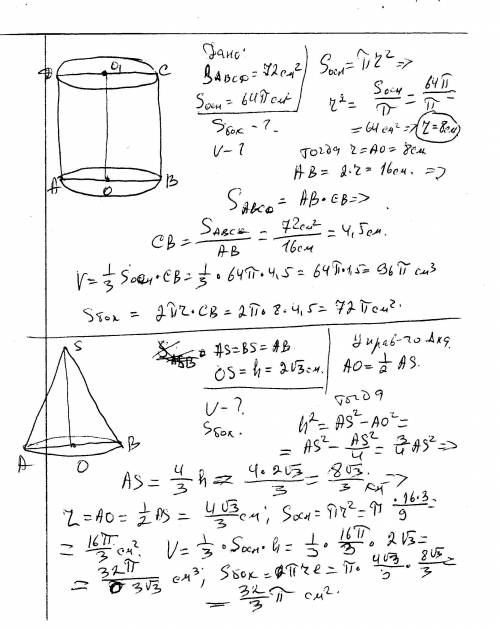 Дано:
S_ABCD = 72 см²
S_осн = 64π см²
S_бок = ?
V – ?
S_осн = πr² =>
r² = S_осн/π = 64π/π =
= 64 см² => r = 8 см
тогда r = AO = 8 см
AB = 2·r = 16 см. =>
S_ABCD = AB·CB =>
CB = S_ABCD/AB = 72см²/16см = 4,5 см.
V = 1/3 S_осн·CB = 1/3 · 64π·4,5 = 64π·1,5 = 96π см³
S_бок = 2πr·CB = 2π·8·4,5 = 72π см².
D O₁ C
A O B
S
A O B
AS = BS = AB
OS = h = 2√3 см.
V – ?
S_бок.
AO = 1/2 AS.
тогда
h² = AS² – AO² =
= AS² – AS²/4 = 3/4 AS² =>
AS = 4/3 h = 4·2√3/3 = 8√3/3 см =>
r = AO = 1/2 AS = 4√3/3 см; S_осн = πr² = π·16·3/9 =
= 16π/3 см². V = 1/3·S_осн·h = 1/3·16π/3·2√3 =
= 32π/3√3 см³; S_бок = πrl = π·4√3/3·8√3/3 =
= 32/3 π см².